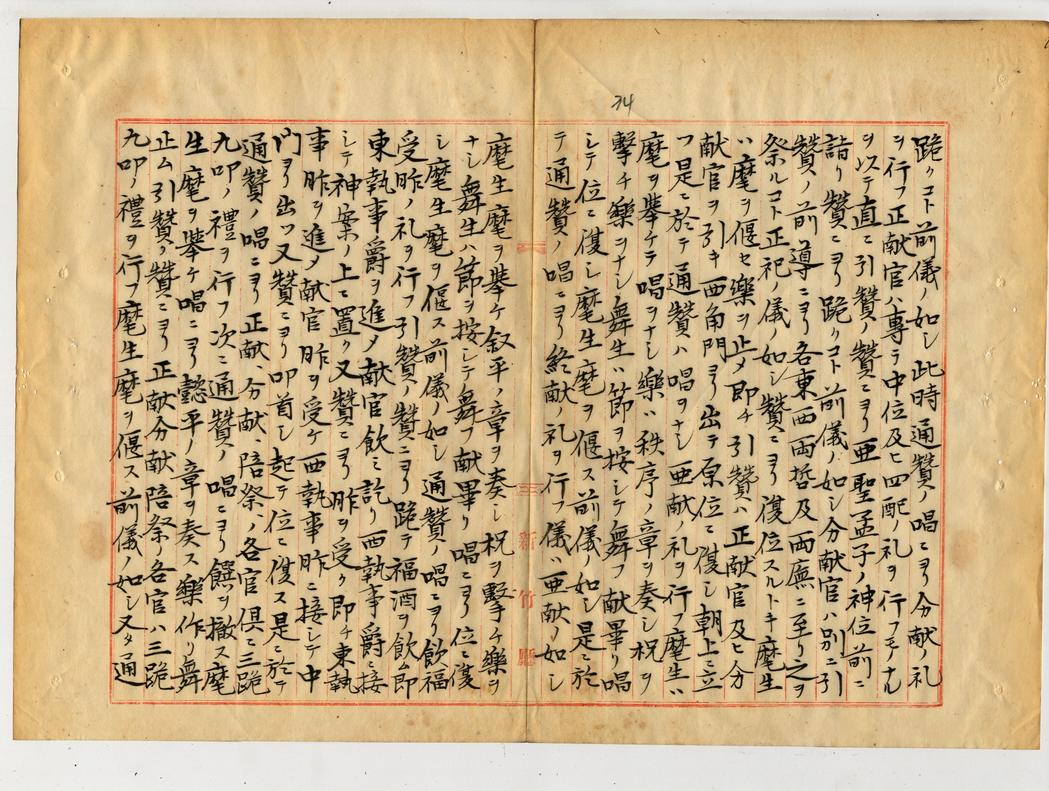 34
跪クコト前儀ノ如シ此時通贊ノ唱ニヨリ分献ノ礼
ヲ行フ正献官ハ専ラ中位及ヒ四配ノ礼ヲ行フモノナル
ヲ以テ直ニ引贊ノ贊ニヨリ亜聖孟子ノ神位前ニ
詣リ贊ニヨリ跪クコト前儀ノ如シ分献官ハ別ニ引
贊ノ前導ニヨリ各東西両哲及両廡ニ至リ之ヲ
祭ルコト正祀ノ儀ノ如シ贊ニヨリ復位スルトキ麾生
ハ麾ヲ偃セ樂ヲ止メ即チ引贊ハ正献官及ヒ分
献官ヲ引キ西角門ヨリ出テ原位ニ復シ朝上ニ立
ツ是ニ於テ通贊ハ唱ヲナシ亜献ノ礼ヲ行フ麾生ハ
麾ヲ挙ケテ唱ヲナシ樂ハ秩序ノ章ヲ奏シ柷ヲ
擊チ樂ヲナシ舞生ハ節ヲ按シテ舞フ献畢リ唱
シテ位ニ復シ麾生麾ヲ偃ス前儀ノ如シ是ニ於
テ通贊ノ唱ニヨリ終献ノ礼ヲ行フ儀ハ亜献ノ如シ
新竹廳
麾生麾ヲ挙ケ叙平ノ章ヲ奏シ柷ヲ擊ケ樂ヲ
ナシ舞生ハ節ヲ按シテ舞フ献畢リ唱ニヨリ位ニ復
シ麾生麾ヲ偃ス前儀ノ如シ通贊ノ唱ニヨリ飲福
受胙ノ礼ヲ行フ引贊ノ贊ニヨリ跪テ福酒ヲ飲ム即
東執事爵ヲ進メ献官飲ミ訖リ西執事爵ニ接
シテ神案ノ上ニ置ク又贊ニヨリ胙ヲ受ク即チ東執
事胙ヲ進メ献官胙ヲ受ケ西執事胙ニ接シテ中
門ヨリ出ツ又贊ニヨリ叩首シ起テ位ニ復ス是ニ於テ
通贊ノ唱ニヨリ正献、分献、陪祭ノ各官倶ニ三跪
九叩ノ禮ヲ行フ次ニ通贊ノ唱ニヨリ饌ヲ撤ス麾
生麾ヲ挙ケ唱ニヨリ懿平ノ章ヲ奏ス樂作リ舞
止ム引贊ノ贊ニヨリ正献分献陪祭ノ各官ハ三跪
九叩ノ禮ヲ行フ麾生麾ヲ偃ス前儀ノ如シ又タ通